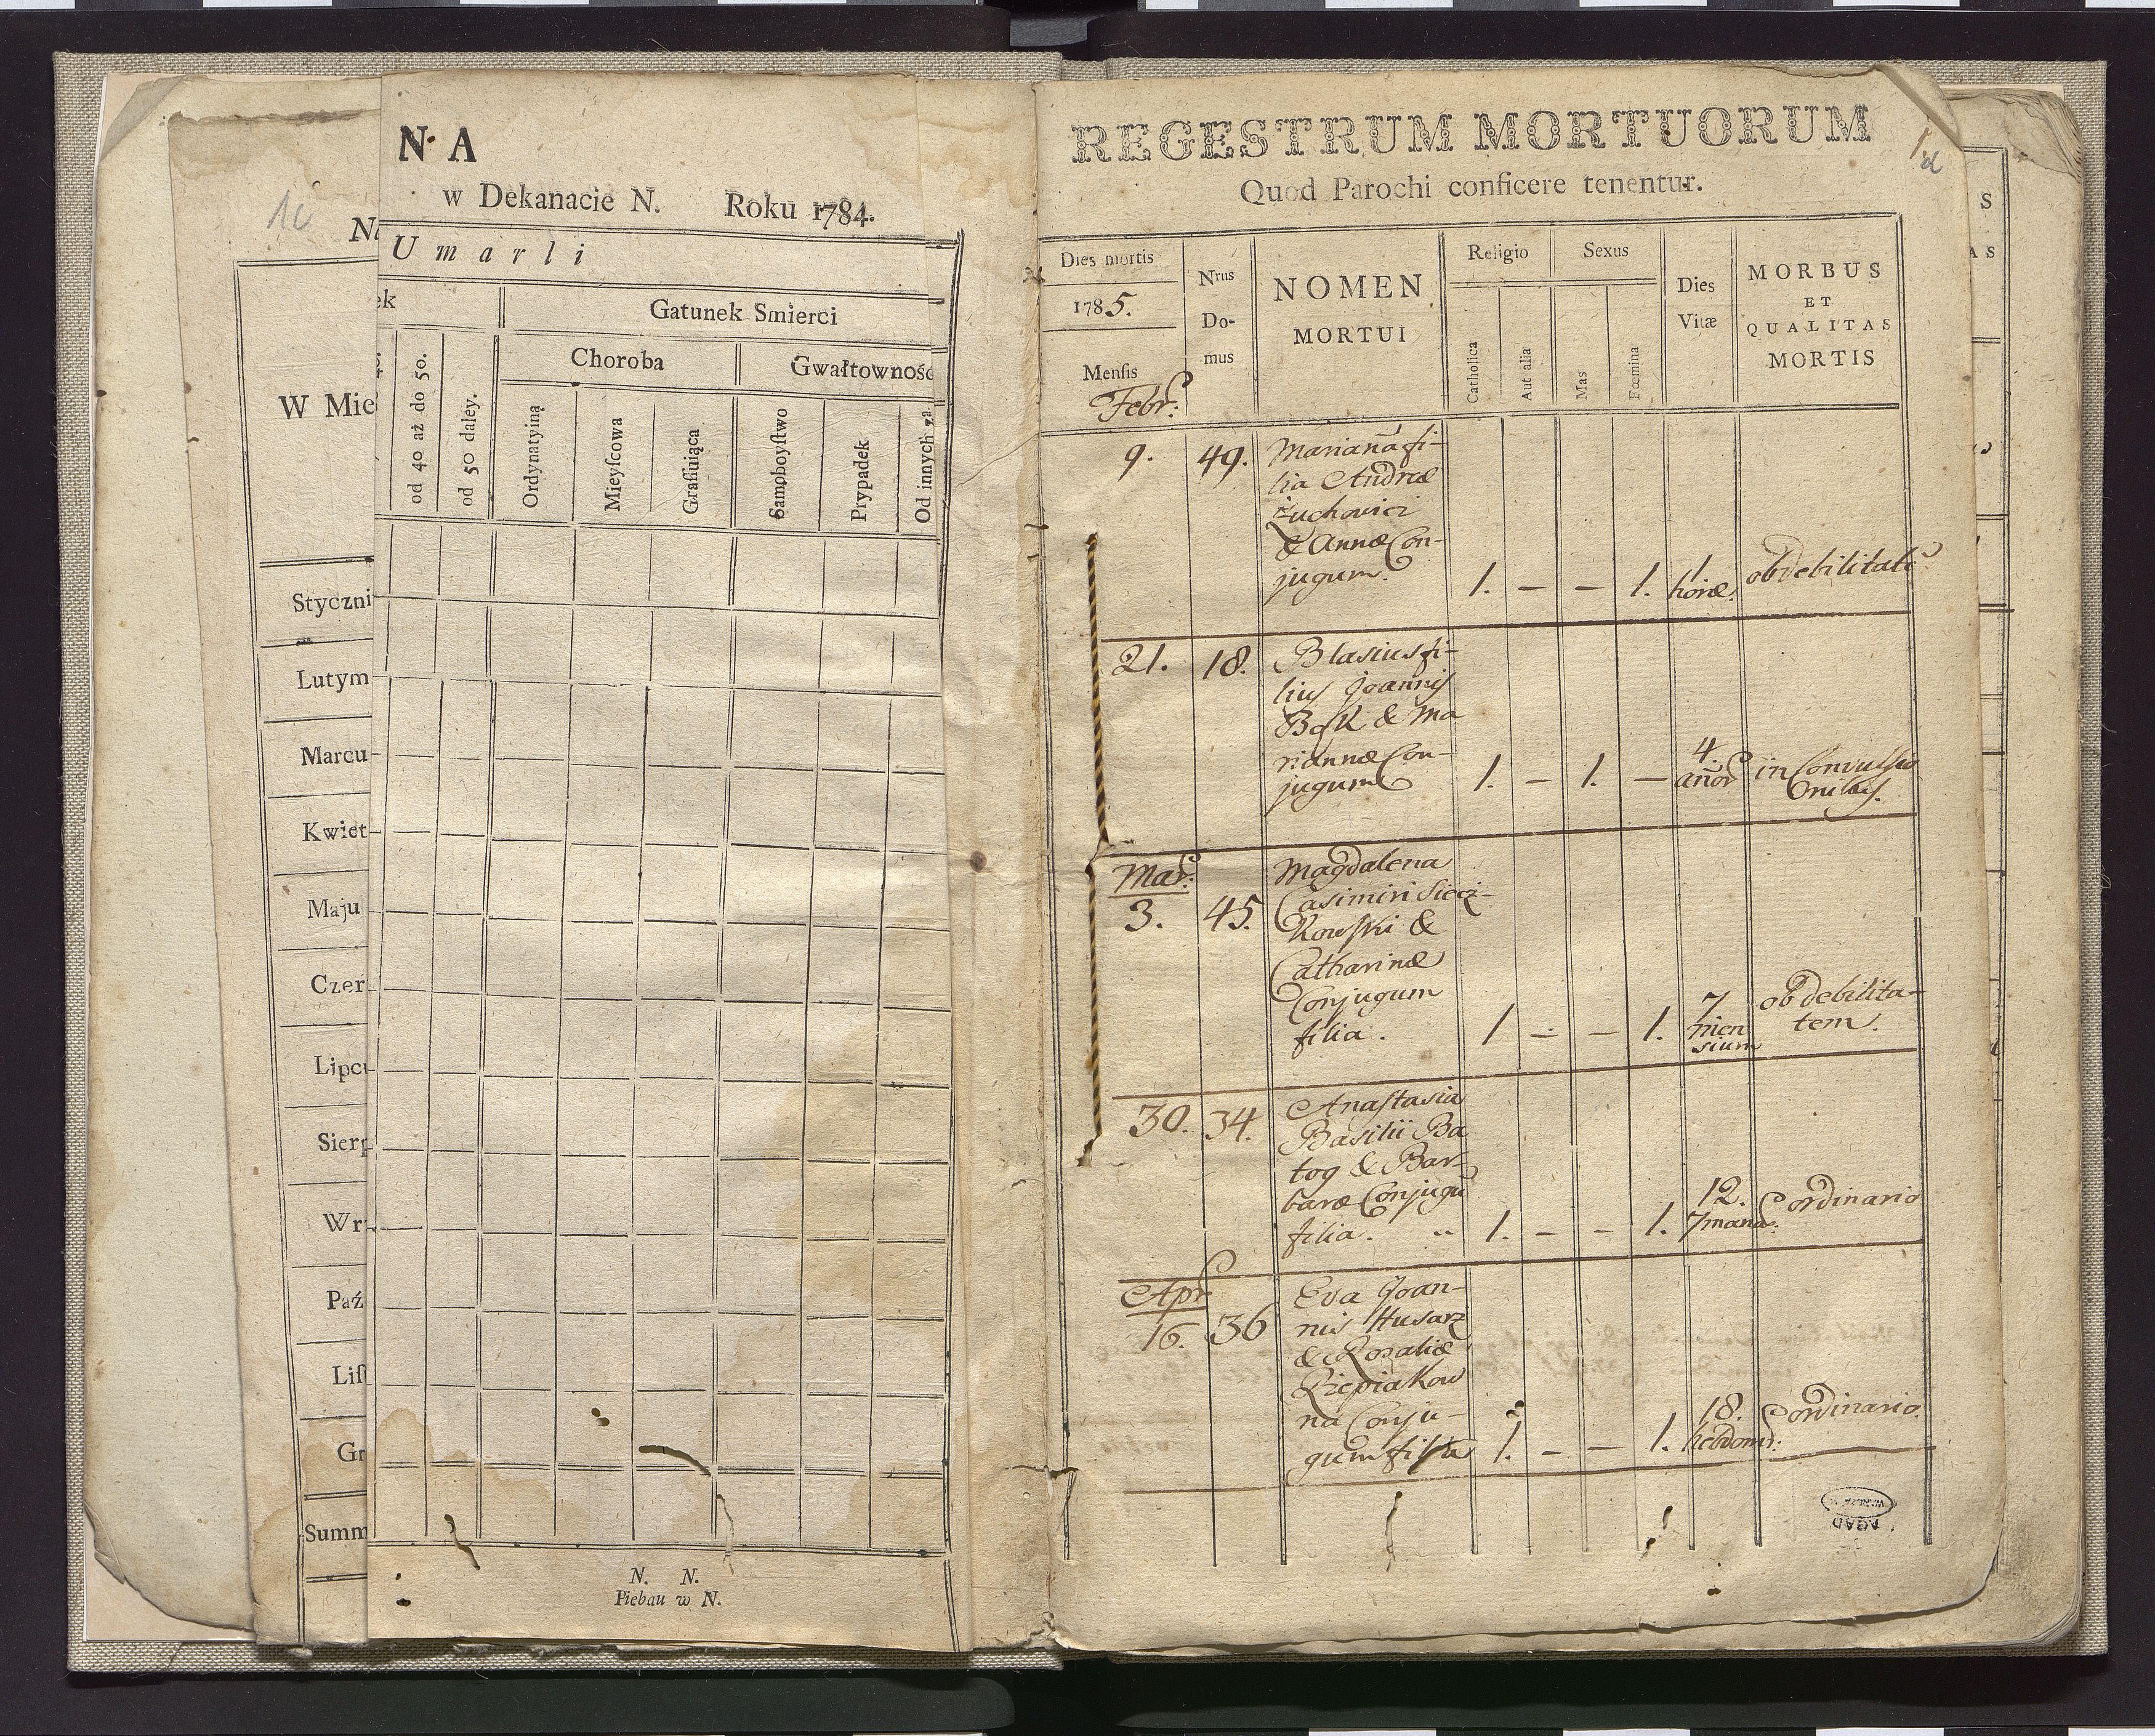 N. A
w Dekanacie N. Roku 1784.
1c
N
Umarli
ek
Gatunek Smierci
Choroba
Gwałtowność
W Mie
od 40 aż do 50.
od 50 daley.
Ordynatyiną
Mieyscowa
Grassuiąca
Samoboystwo
Prypadek
Od innych za
Styczni
Lutym
Marcu
Kwiet
Maju
Czer
Lipcu
Sierp
Wr
Paź
List
Gr
Summ
N. N.
Plebau w N.
REGESTRUM MORTUORUM
Quod Parochi conficere tenentur.
Dies mortis
1785.
Mensis
Febr:
Nrus
Do-
mus
NOMEN
MORTUI
Religio
Catholica
Aut alia
Sexus
Mas
Fœmina
Dies
Vitæ
MORBUS
ET
QUALITAS
MORTIS
9. 49. Marianna fi-
lia Andreæ
Żuchowicz
& Annæ Con-
jugum.
1. – – 1. 1 horæ. ob debilitatē
21. 18. Blasius fi-
lius Joannis
Bąk & Ma
riannæ Con-
jugum
1. – 1. – 4. añor in Convulsio
nibus.
Mar:
3. 45. Magdalena
Casimiri Siecz-
kowski &
Catharinæ
Conjugum
filia.
1 – – 1. 7 men
sium
ob debilita-
tem.
30. 34. Anastasia
Basilii Ba
tog & Bar-
baræ Conjugū
filia.
1. – – 1. 12. 7mana: ordinario
Apr
16. 36 Eva Joan-
nis Husarz
& Rosaliæ
Rzepiakow
na Conju-
gum filia
1. – – 1. 18. hebdom: ordinario.
AGAD